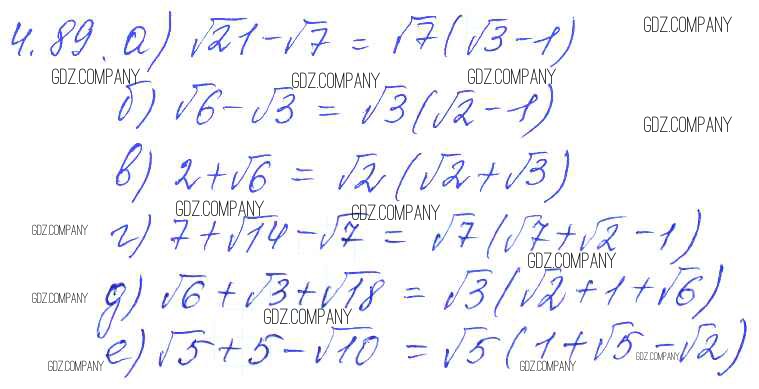 4.89. а) √21 - √7 = √7(√3 - 1) GDZ.COMPANY
GDZ.COMPANY GDZ.COMPANY GDZ.COMPANY
б) √6 - √3 = √3(√2 - 1) GDZ.COMPANY
в) 2 + √6 = √2(√2 + √3)
GDZ.COMPANY GDZ.COMPANY
GDZ.COMPANY г) 7 + √14 - √7 = √7(√7 + √2 - 1)
GDZ.COMPANY
GDZ.COMPANY д) √6 + √3 + √18 = √3(√2 + 1 + √6)
GDZ.COMPANY
е) √5 + 5 - √10 = √5(1 + √5 - √2) GDZ.COMPANY
GDZ.COMPANY GDZ.COMPANY